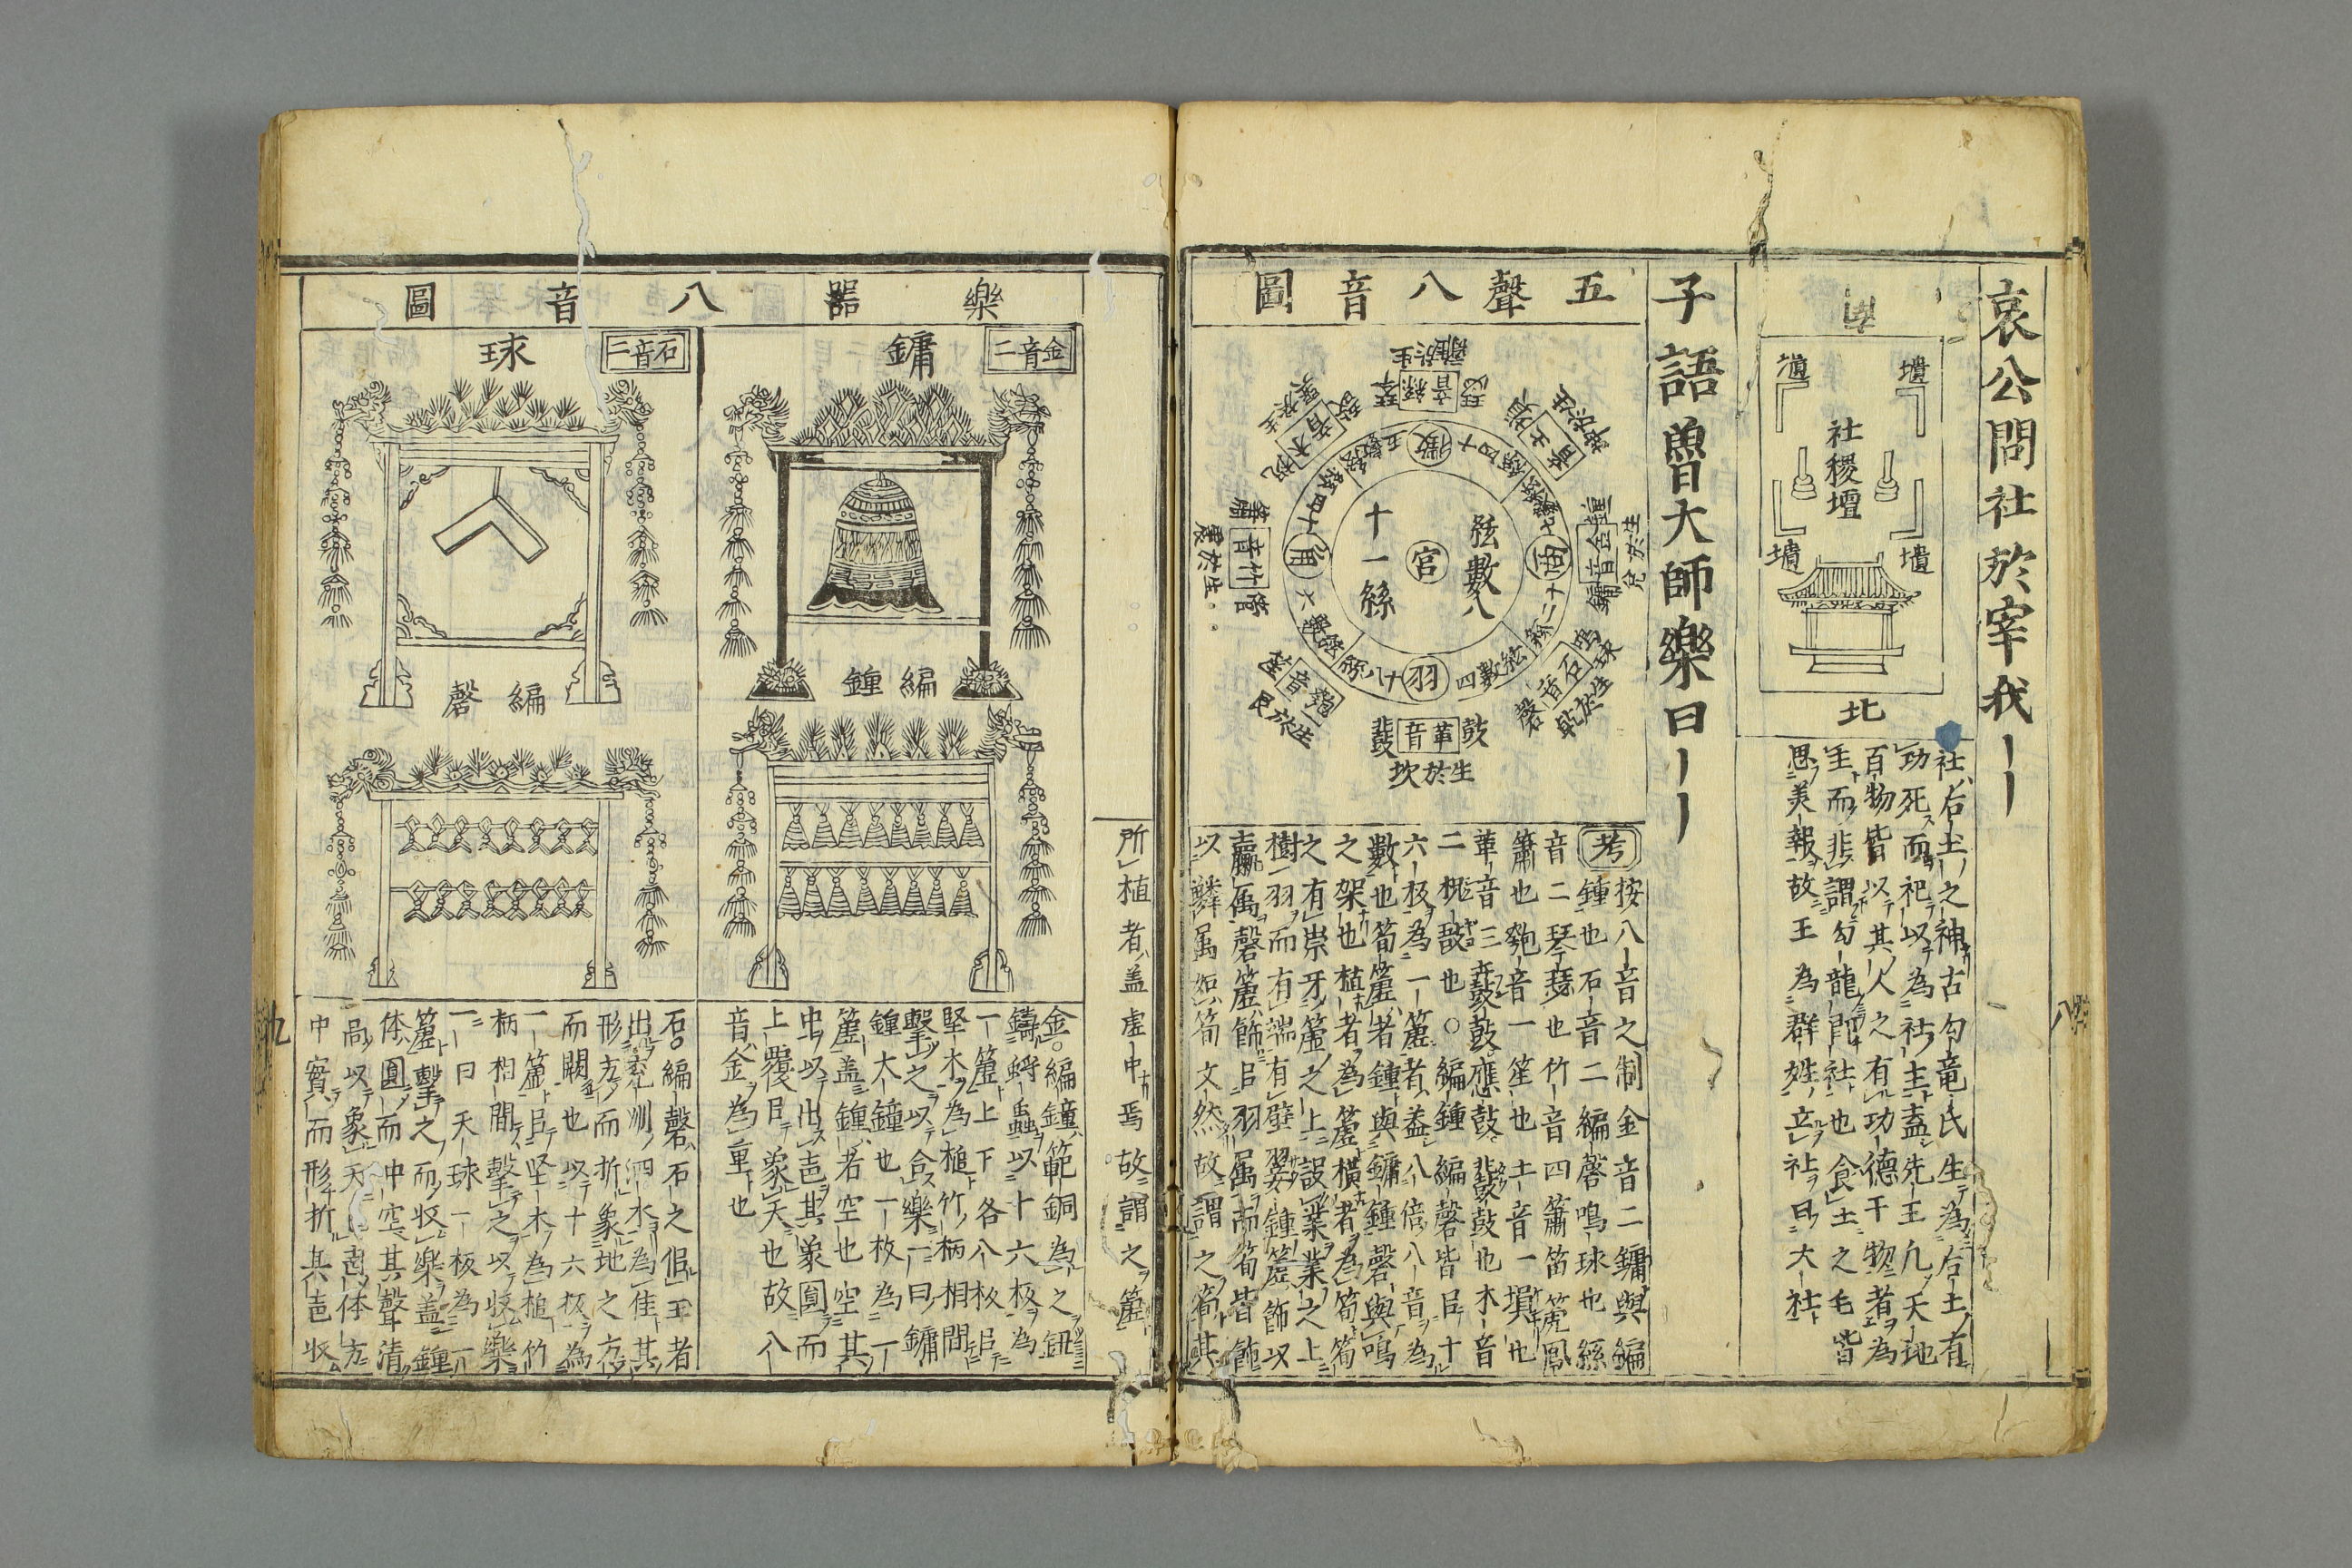 哀公問社於宰我
南
壝
壝
社稷壇
壝
壝
北
社后土之神古勾竜氏生為后土有
功死而祀以為社主蓋先王凡天地
百物皆以其人之有功德干物者為
主而非謂勾龍即社也食土之毛皆
思美報故王為群姓立社曰大社
子語魯大師樂曰
五聲八音圖
宮
絃數八
十一絲
徵
商
羽
角
音絲
琴
瑟
生於離
音土
塤
音金
鐘
鏞
生於兌
音石
鳴球
磬
生於乾
音革
鼓
鼗
生於坎
音匏
笙
生於艮
音竹
簫
管
生於震
音木
柷
敔
考
按八音之制金音二鏞與編
鍾也石音二編磬鳴球也絲
音二琴瑟也竹音四簫笛篪鳳
簫也匏音一笙也土音一塤也
革音三鼖鼓應鼓鼗鼓也木音
二柷敔也○編鍾編磬皆㠯十
六板為一簴者蓋八倍八音為
數也筍簴者鍾與鏞鍾磬與鳴
之架也植者為簴橫者為筍筍
之有崇牙簴之上設業業之上
樹羽而有端有璧翣鍾簴飾以
臝属磬簴飾㠯羽属而筍皆飾
以鱗属如筍文然故謂之筍其
八
所植者盖虚中焉故謂之簴
樂器八音圖
金音二
鏞
編鍾
石音二
球
編磬
金○編鐘範銅為之鈕
鑄蹲蟲以十六板為
一簴上下各八板㠯
堅木為槌竹柄相間
擊之以合樂一曰鏞
鐘大鐘也一枚為一
簴盖鐘若空也空其
虫以出声其象圓而
上覆㠯象天也故八
音金為重也
石○編磬石之佀玉者
出兖州泗水為佳其
形方而折象地之方
而闕也以十六板為
一簴㠯坚木為槌竹
柄相間擊之以收樂
一曰天球一板為一
簴擊之而收樂盖鐘
体圓而中空其聲清
中實而形折其声收
九